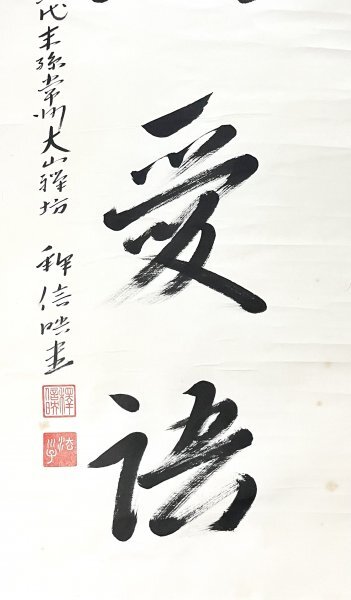 愛語
代末孫常州大山禅坊 釈信暎書